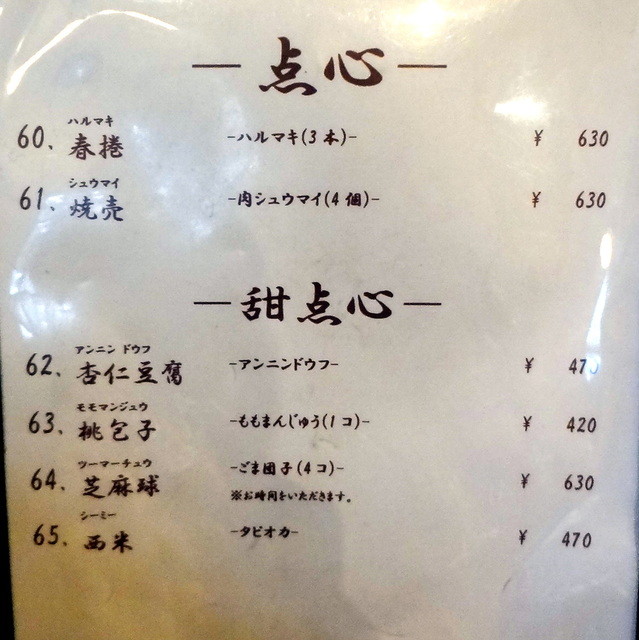 点心
ハルマキ
60. 春捲 -ハルマキ(3本)- ¥ 630
シュウマイ
61. 焼売 -肉シュウマイ(4個)- ¥ 630
甜点心
アンニンドウフ
62. 杏仁豆腐 -アンニンドウフ- ¥ 470
モモマンジュウ
63. 桃包子 -ももまんじゅう(1コ)- ¥ 420
ツーマーチュウ
64. 芝麻球 -ごま団子(4コ)- ¥ 630
※お時間をいただきます。
シーミー
65. 西米 -タピオカ- ¥ 470